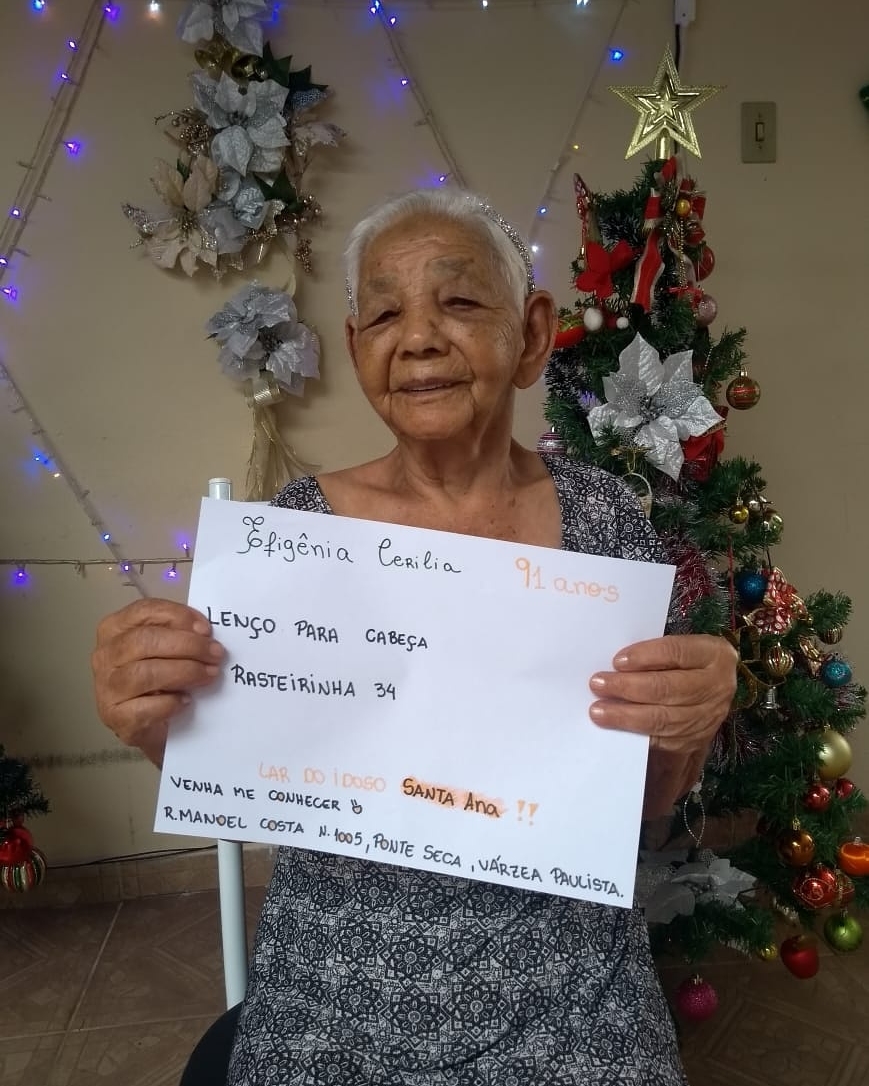 Efigênia Cerilia 91 anos
LENÇO PARA CABEÇA
RASTEIRINHA 34
LAR DO iDOSO SANTA Ana !!
VENHA ME CONHECER
R.MANOEL COSTA N.1005, PONTE SECA, VÁRZEA PAULISTA.